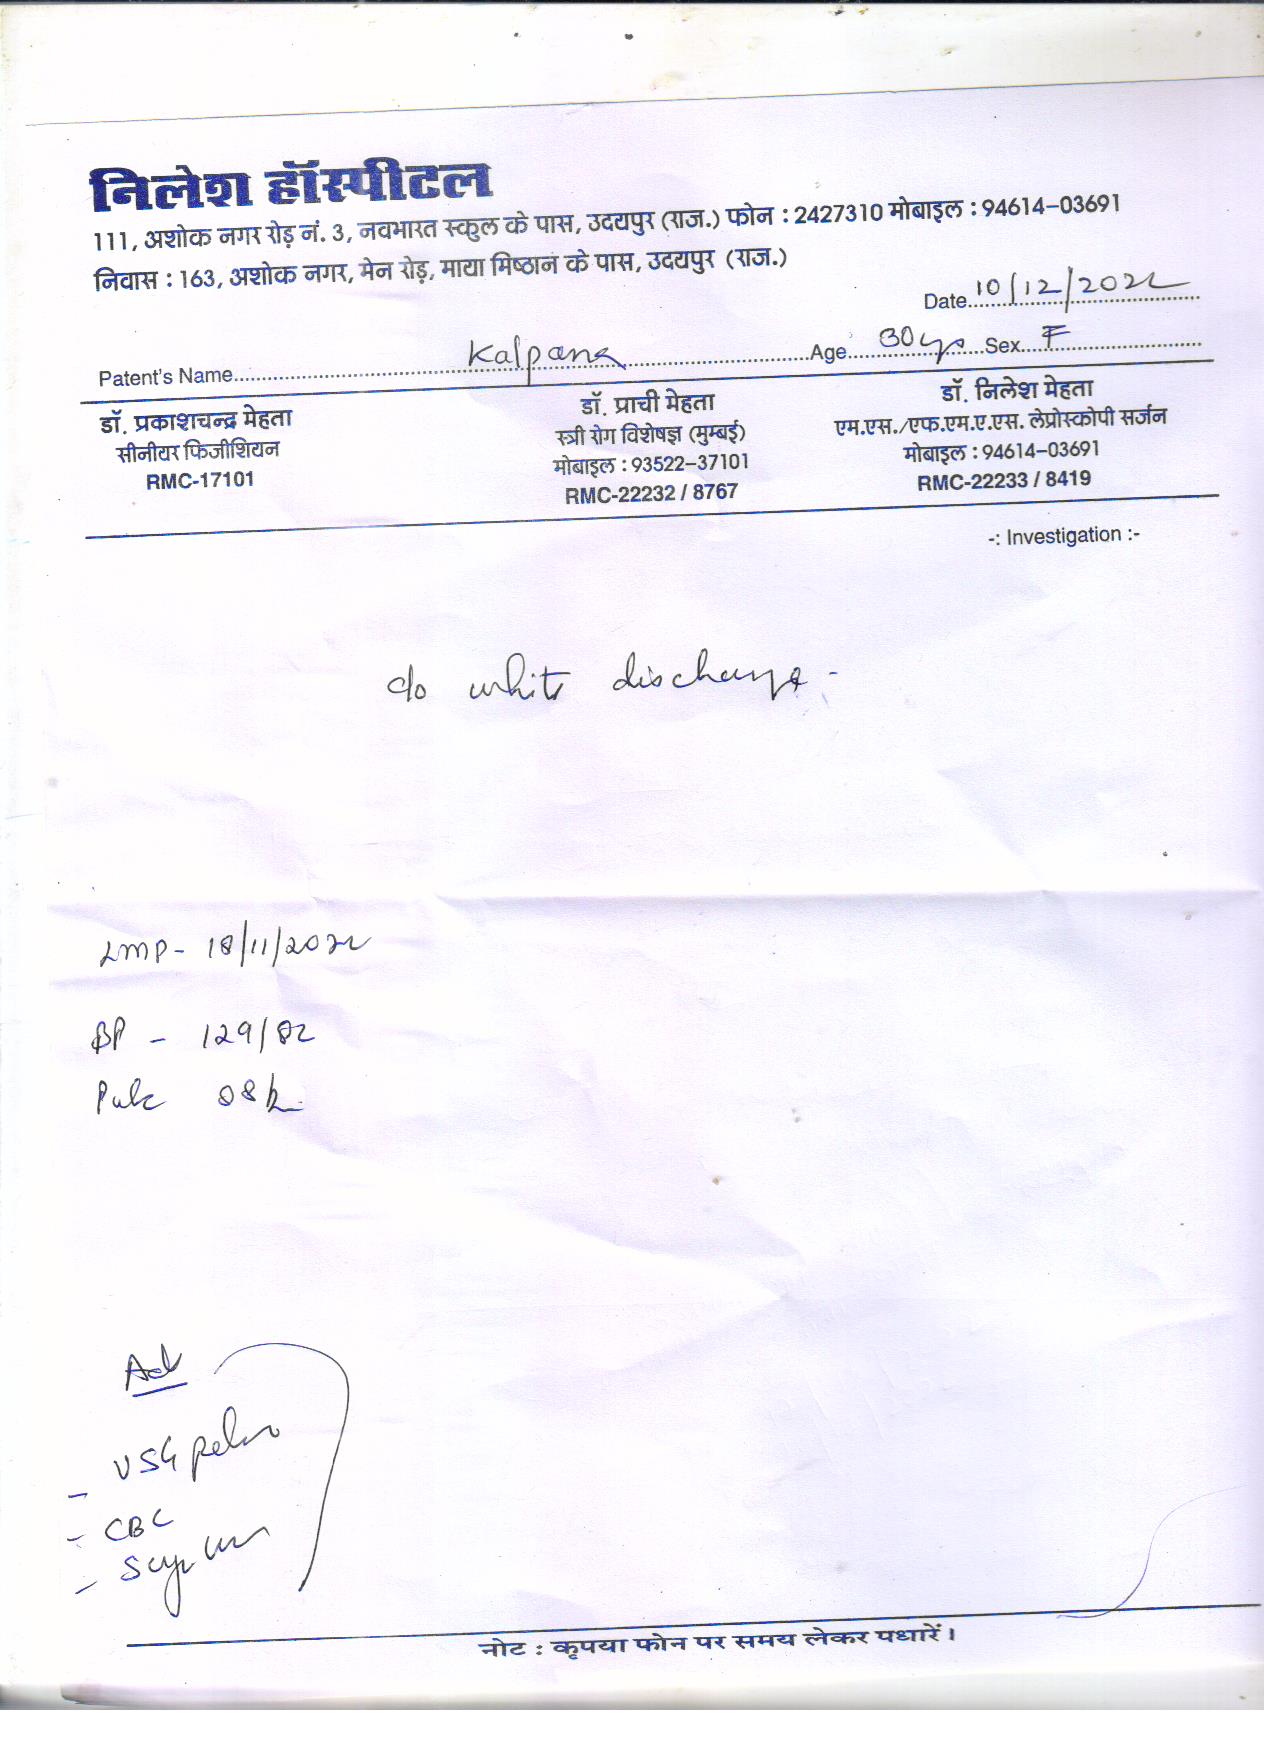 निलेश हॉस्पीटल
111, अशोक नगर रोड़ नं. 3, नवभारत स्कुल के पास, उदयपुर (राज.) फोन : 2427310 मोबाइल : 94614-03691
निवास : 163, अशोक नगर, मेन रोड़, माया मिष्ठान के पास, उदयपुर (राज.)
Date 10/12/2022
Patent's Name Kalpana Age 30 yrs Sex F
डॉ. प्रकाशचन्द्र मेहता डॉ. प्राची मेहता डॉ. निलेश मेहता
सीनीयर फिजीशियन स्त्री रोग विशेषज्ञ (मुम्बई) एम.एस./एफ.एम.ए.एस. लेप्रोस्कोपी सर्जन
RMC-17101 मोबाइल : 93522-37101 मोबाइल : 94614-03691
RMC-22232 / 8767 RMC-22233 / 8419
-: Investigation :-
c/o white discharge -
LMP - 18/11/2022
BP - 129/82
Pulse
Adv
- USG pelvis
- CBC
-
नोट : कृपया फोन पर समय लेकर पधारें।